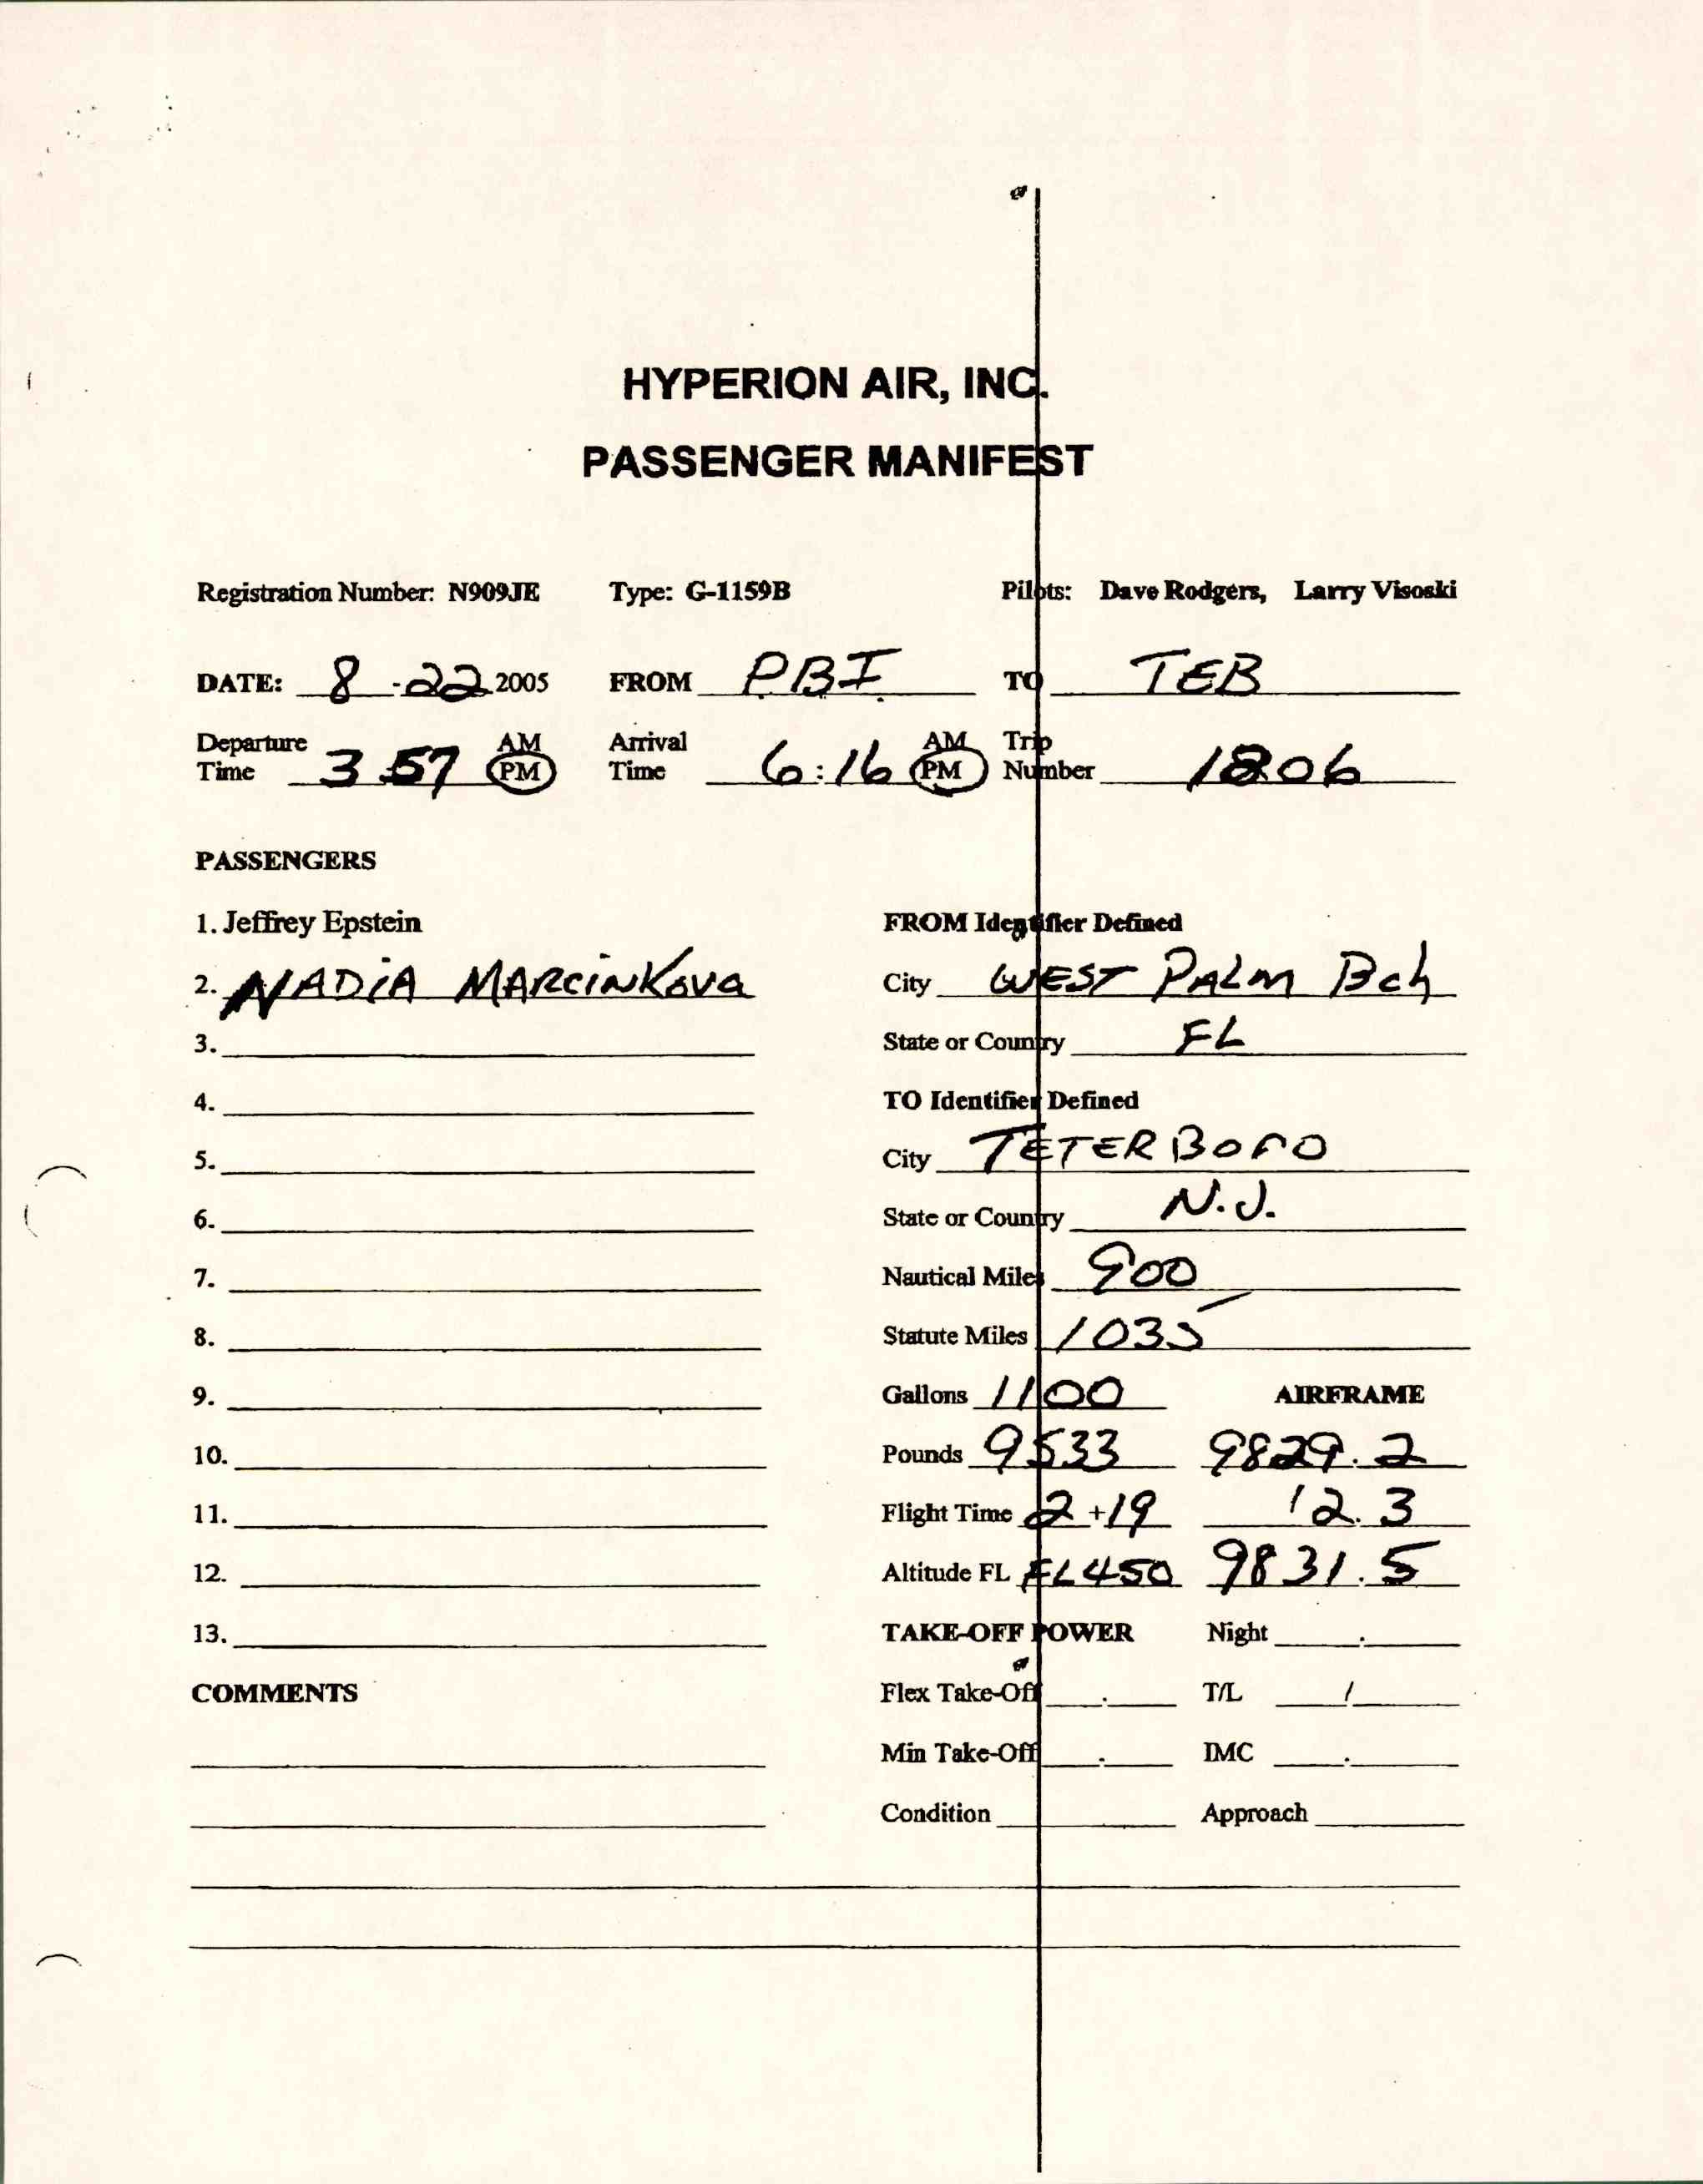 HYPERION AIR, INC.
PASSENGER MANIFEST
Registration Number: N909JE Type: G-1159B Pilots: Dave Rodgers, Larry Visoski
DATE: 8-22 2005 FROM PBI TO TEB
Departure Time 3:57 AM PM Arrival Time 6:16 AM PM Trip Number 1806
PASSENGERS
1. Jeffrey Epstein FROM Identifier Defined
2. NADIA MARCINKOVA City WEST PALM Bch
3. State or Country FL
4. TO Identifier Defined
5. City TETERBORO
6. State or Country N.J.
7. Nautical Miles 900
8. Statute Miles 1035
9. Gallons 1100 AIRFRAME
10. Pounds 9533 9829.2
11. Flight Time 2+19 12.3
12. Altitude FL FL450 9831.5
13. TAKE-OFF POWER Night .
COMMENTS Flex Take-Off . T/L /
Min Take-Off . IMC .
Condition Approach